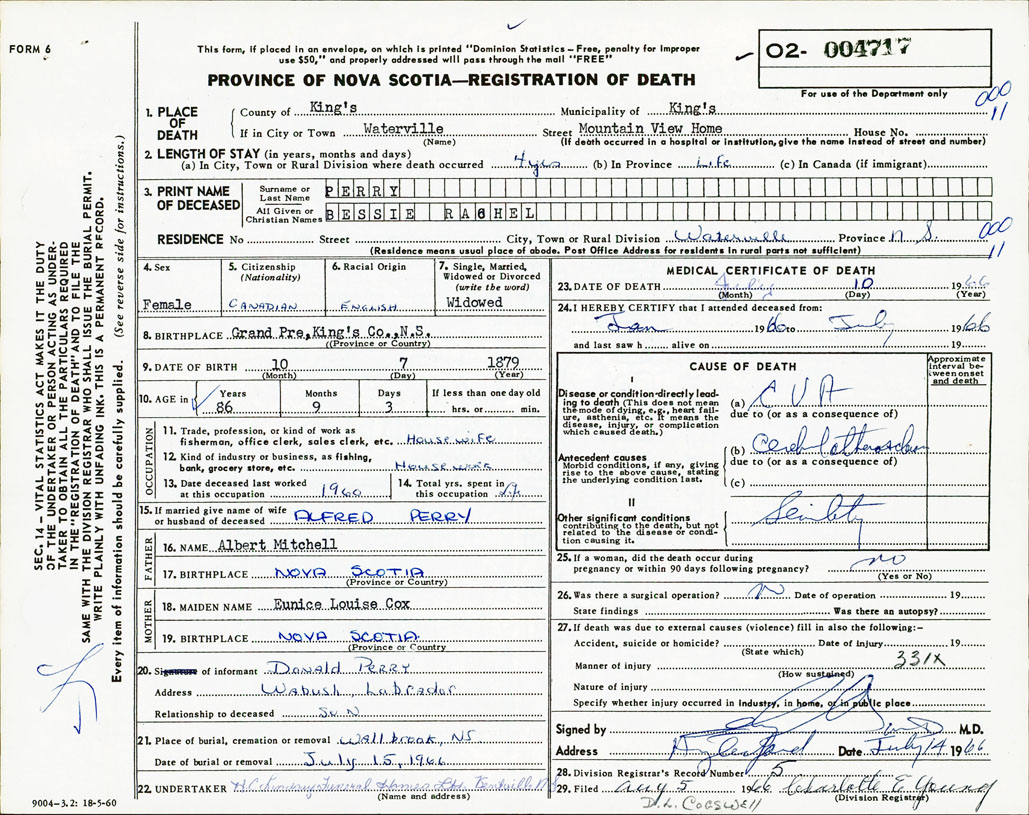 FORM 6
This form, if placed in an envelope, on which is printed "Dominion Statistics – Free, penalty for improper
use $50," and properly addressed will pass through the mail "FREE"
PROVINCE OF NOVA SCOTIA—REGISTRATION OF DEATH
02- 004717
For use of the Department only
000
11
1. PLACE OF DEATH
County of King's Municipality of King's
If in City or Town Waterville Street Mountain View Home House No.
(Name) (If death occurred in a hospital or institution, give the name instead of street and number)
2. LENGTH OF STAY (in years, months and days)
(a) In City, Town or Rural Division where death occurred 4 yrs (b) In Province Life (c) In Canada (if immigrant)
3. PRINT NAME OF DECEASED
Surname or Last Name PERRY
All Given or Christian Names BESSIE RACHEL
RESIDENCE No Street City, Town or Rural Division Waterville Province N S.
(Residence means usual place of abode. Post Office Address for residents in rural parts not sufficient)
000
11
4. Sex
Female
5. Citizenship
(Nationality)
CANADIAN
6. Racial Origin
ENGLISH
7. Single, Married, Widowed or Divorced
(write the word)
Widowed
8. BIRTHPLACE Grand Pre, King's Co., N.S.
(Province or Country)
9. DATE OF BIRTH 10 7 1879
(Month) (Day) (Year)
10. AGE in Years Months Days If less than one day old
86 9 3 hrs. or min.
OCCUPATION
11. Trade, profession, or kind of work as
fisherman, office clerk, sales clerk, etc. House wife
12. Kind of industry or business, as fishing,
bank, grocery store, etc. House work
13. Date deceased last worked
at this occupation 1960
14. Total yrs. spent in
this occupation
15. If married give name of wife
or husband of deceased ALFRED PERRY
FATHER
16. NAME Albert Mitchell
17. BIRTHPLACE NOVA SCOTIA
(Province or Country)
MOTHER
18. MAIDEN NAME Eunice Louise Cox
19. BIRTHPLACE NOVA SCOTIA
(Province or Country
20. Signature of informant Donald PERRY
Address Wabush, Labrador
Relationship to deceased Son
21. Place of burial, cremation or removal Wallbrook, NS
Date of burial or removal July 15, 1966
22. UNDERTAKER Funeral Homes Ltd. Kentville NS
(Name and address)
9004–3.2: 18-5-60
MEDICAL CERTIFICATE OF DEATH
23. DATE OF DEATH July 10 1966
(Month) (Day) (Year)
24. I HEREBY CERTIFY that I attended deceased from:
Jan 1966 to July 1966
and last saw h alive on 19
CAUSE OF DEATH
Approximate interval between onset and death
I
Disease or condition directly leading to death (This does not mean the mode of dying, e.g., heart failure, asthenia, etc. It means the disease, injury, or complication which caused death.)
(a) C V A
due to (or as a consequence of)
Antecedent causes
Morbid conditions, if any, giving rise to the above cause, stating the underlying condition last.
(b)
due to (or as a consequence of)
(c)
II
Other significant conditions
contributing to the death, but not related to the disease or condition causing it.
Senility
25. If a woman, did the death occur during
pregnancy or within 90 days following pregnancy? no
(Yes or No)
26. Was there a surgical operation? No Date of operation 19
State findings Was there an autopsy?
27. If death was due to external causes (violence) fill in also the following:–
Accident, suicide or homicide? Date of injury 19
(State which)
Manner of injury 331X
(How sustained)
Nature of injury
Specify whether injury occurred in industry, in home, or in public place
Signed by M.D.
Address Date July 14 1966
28. Division Registrar's Record Number 5
29. Filed Aug 5 1966 Charlotte E Young
(Division Registrar)
D. L. COGSWELL
SEC. 14 – VITAL STATISTICS ACT MAKES IT THE DUTY
OF THE UNDERTAKER OR PERSON ACTING AS UNDER-
TAKER TO OBTAIN ALL THE PARTICULARS REQUIRED
IN THE "REGISTRATION OF DEATH" AND TO FILE THE
SAME WITH THE DIVISION REGISTRAR WHO SHALL ISSUE THE BURIAL PERMIT.
WRITE PLAINLY WITH UNFADING INK. THIS IS A PERMANENT RECORD.
Every item of information should be carefully supplied. (See reverse side for instructions.)